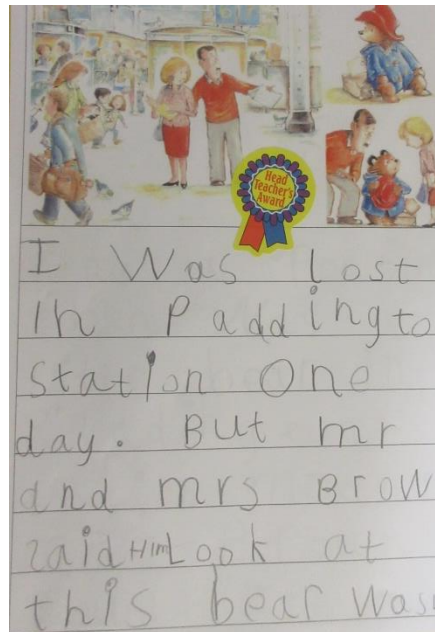 Head
Teacher's
Award
I Was lost
In Paddingto
station One
day. But mr
and mrs Brow
said Him Look at
this bear was